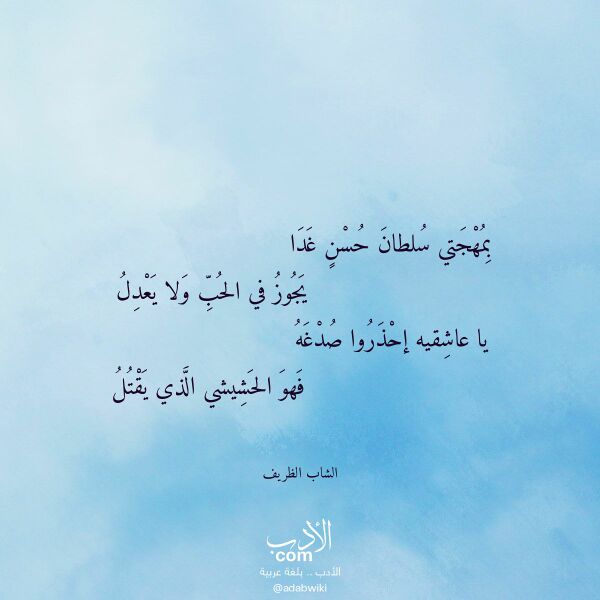 بِمُهْجَتي سُلطانَ حُسْنٍ غَدَا
يَجُوزُ في الحُبِّ وَلا يَعْدِلُ
يا عاشِقيه إحْذَرُوا صُدْغَهُ
فَهوَ الحَشِيشي الَّذي يَقْتُلُ
الشاب الظريف
الأدب
com
الأدب .. بلغة عربية
@adabwiki